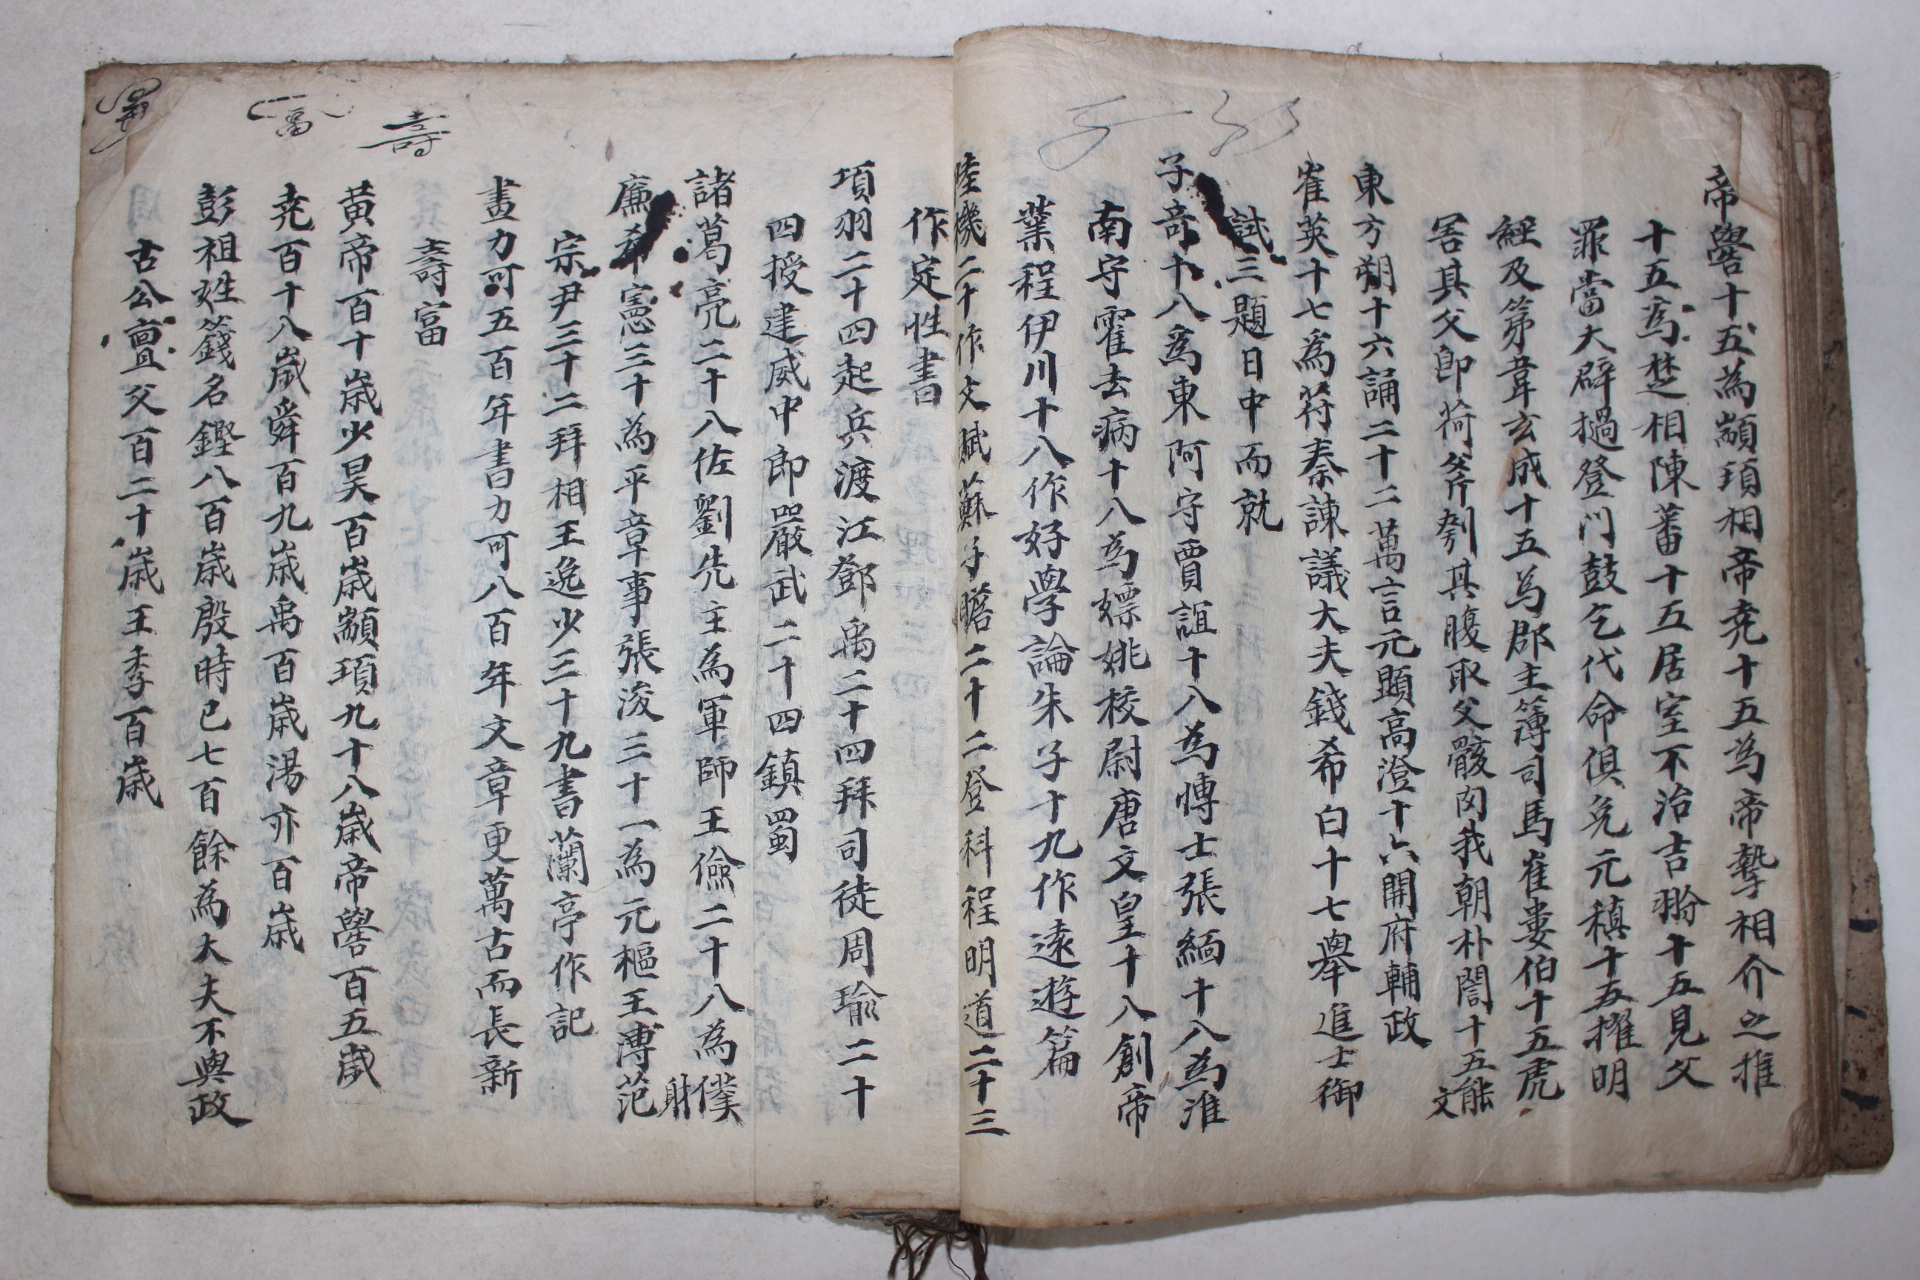 帝嚳十五為顓頊相帝堯十五為帝摯相介之推
十五為楚相陳蕃十五居室不治吉翂十五見父
罪當大辟撾登門鼓乞代命俱免元稹十五擢明
經及第韋玄成十五為郡主簿司馬崔婁伯十五虎
害其父卽荷斧刳其腹取父骸肉我朝朴誾十五能文
東方朔十六誦二十二萬言元顯高澄十六開府輔政
崔英十七為苻秦諫議大夫錢希白十七舉進士御
試三題日中而就
子奇十八為東阿守賈誼十八為博士張緬十八為淮
南守霍去病十八為嫖姚校尉唐文皇十八創帝
業程伊川十八作好學論朱子十九作遠遊篇
陸機二十作文賦蘇子瞻二十二登科程明道二十三
作定性書
項羽二十四起兵渡江鄧禹二十四拜司徒周瑜二十
四授建威中郎嚴武二十四鎮蜀
諸葛亮二十八佐劉先主為軍師王儉二十八為僕射
廉希憲三十為平章事張浚三十一為元樞王溥范
宗尹三十二拜相王逸少三十九書蘭亭作記
畫力可五百年書力可八百年文章更萬古而長新
壽富
壽
富
黃帝百十歲少昊百歲顓頊九十八歲帝嚳百五歲
堯百十八歲舜百九歲禹百歲湯亦百歲
彭祖姓籛名鏗八百歲殷時已七百餘為大夫不與政
古公亶父百二十歲王季百歲